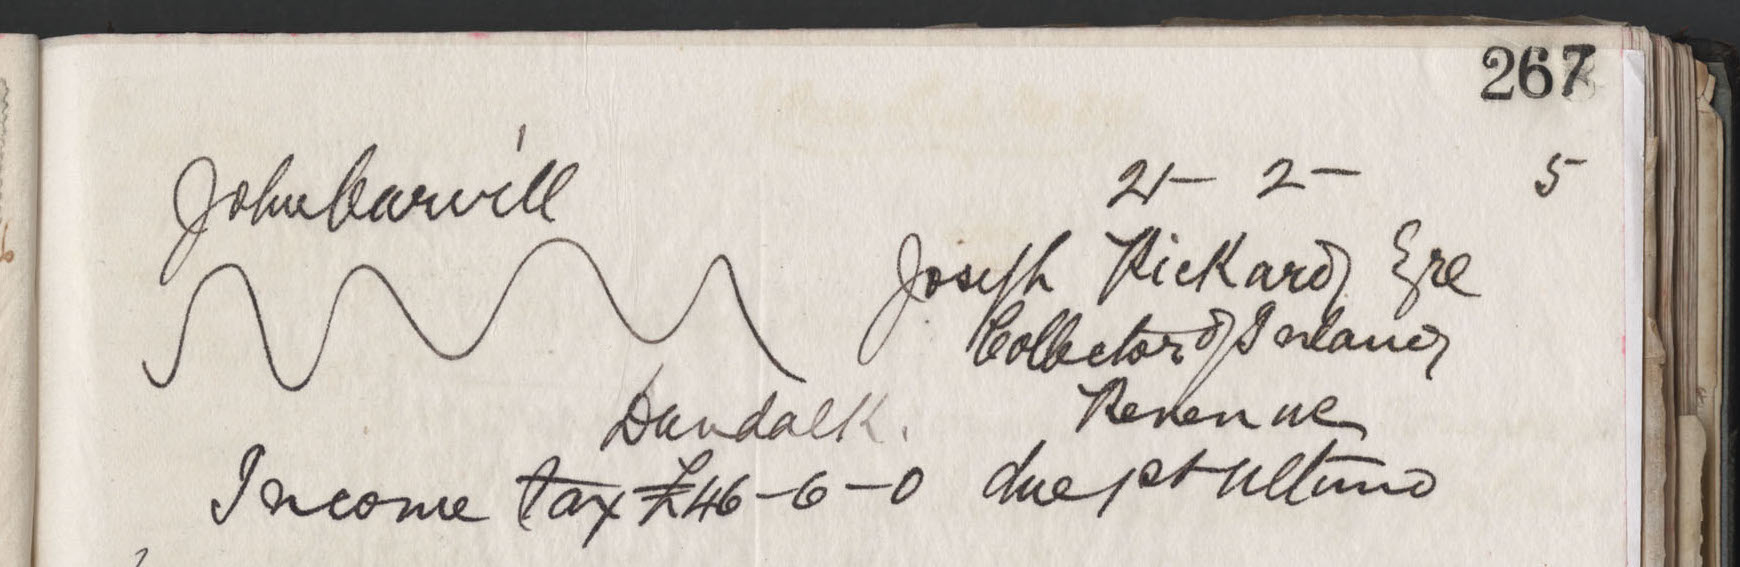 267
John Carvill 21- 2- 5
Joseph Rickard Esre
Collector of Inland
Revenue
Dundalk.
Income tax £46-6-0 due 1st ultimo